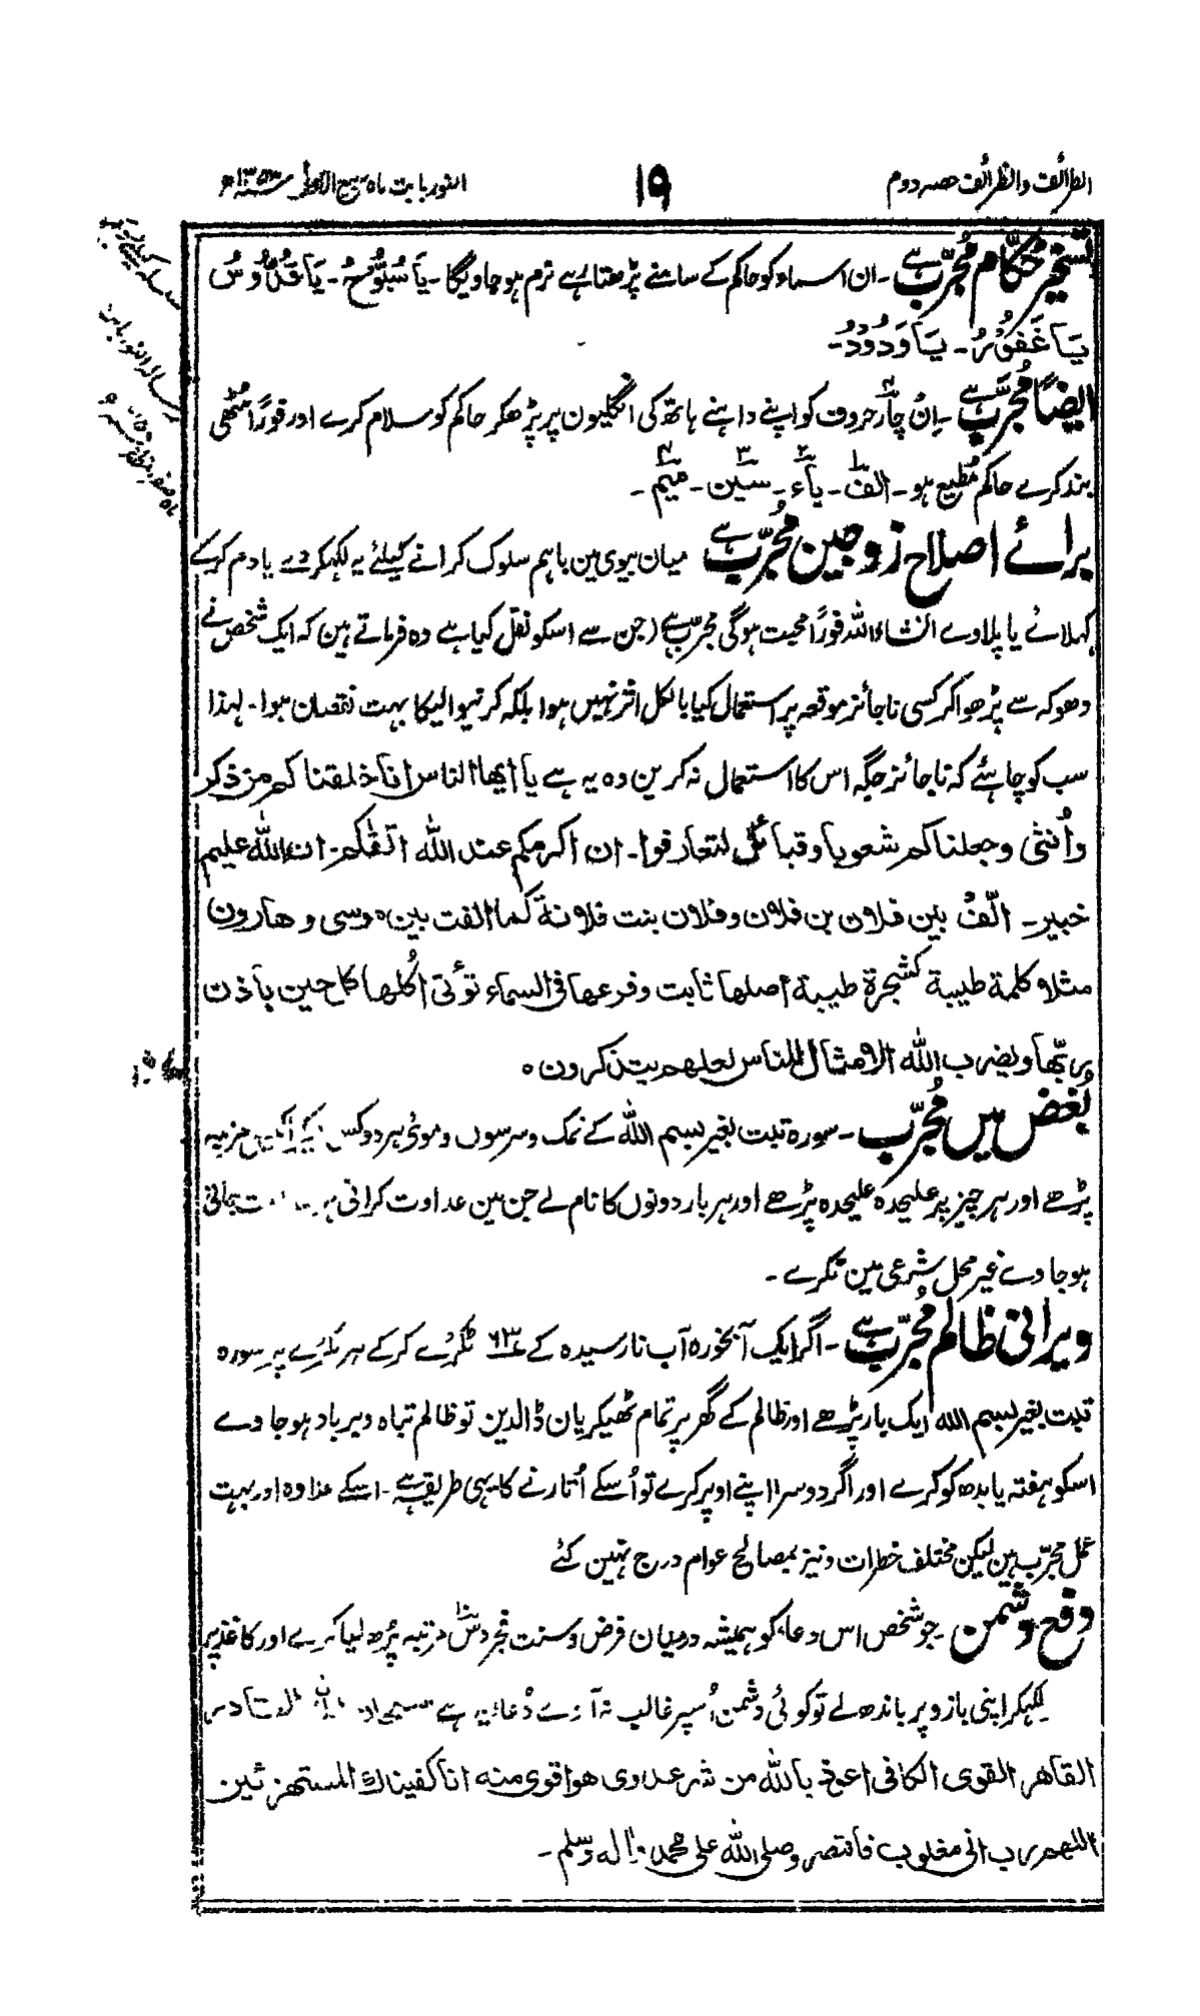 الطرائف والظرائف حصہ دوم
۱۹
النور بابت ماہ ربیع الاول ۱۳۵۳ھ
تسخیر حُکّام مُجرّب ہے۔ ان اسماء کو حاکم کے سامنے پڑھتا رہے نرم ہو جاویگا۔ یَا سُبُّوْحُ۔ یَا قُدُّوْسُ
یَا غَفُوْرُ۔ یَا وَدُوْدُ۔
ایضًا مُجرّب ہے۔ اِن چار حروف کو اپنے داہنے ہاتھ کی انگلیون پر پڑھکر حاکم کو سلام کرے اور فورًا مُٹھی
بند کرے حاکم مُطیع ہو۔ الف۔ یاء۔ سین۔ میم۔
برائے اصلاح زوجین مُجرّب ہے میان بیوی مین باہم سلوک کرانے کیلئے یہ لکھکر دے یا دم کرکے
کہلائے یا پلاوے انشاء اللہ فورًا محبت ہوگی مجرّب ہے (جن سے اسکو نقل کیا ہے وہ فرماتے ہین کہ ایک شخص نے
دھوکہ سے پڑھوا کر کسی ناجائز موقعہ پر استعمال کیا بالکل اثر نہیں ہوا بلکہ کرنیوالیکا بہت نقصان ہوا۔ لہذا
سب کو چاہئے کہ ناجائز جگہ اس کا استعمال نہ کرین وہ یہ ہے یا ایھا الناس انا خلقناکم من ذکر
واُنثٰی وجعلناکم شعوبا وقبائل لتعارفوا۔ ان اکرمکم عند اللہ اتقٰکم۔ ان اللہ علیم
خبیر۔ الّف بین فلان بن فلان وفلان بنت فلانۃ کما الفت بین موسی وھارون
مثلا کلمۃ طیبۃ کشجرۃ طیبۃ اصلھا ثابت وفرعھا فی السماء تؤتی اُکلھا کل حین باذن
ربّھا ویضرب اللہ الامثال للناس لعلھم یتذکرون ہ
بُغض میں مُجرّب۔ سورہ تبت بغیر بسم اللہ کے نمک وسرسوں وموئے ہر دوکس مرتبہ
پڑھے اور ہر چیز پر علیحدہ علیحدہ پڑھے اور ہر بار دونوں کا نام لے جن مین عداوت کرانی
ہوجاوے غیر محل شرعی مین نکرے۔
ویرانی ظالم مُجرّب ہے۔ اگر ایک آبخورہ آب نارسیدہ کے ۶۳ ٹکڑے کرکے ہر ٹکڑے پر سورہ
تبت بغیر بسم اللہ ایک بار پڑھے اور ظالم کے گھر پر تمام ٹھیکریان ڈالدین تو ظالم تباہ وبرباد ہوجاوے
اسکو ہفتہ یا بدھ کو کرے اور اگر دوسرا اپنے اوپر کرے تو اُسکے اُتارنے کا یہی طریقہ ہے۔ اسکے علاوہ اور بہت
عمل مجرّب ہین لیکن مختلف خطرات ونیز بمصالح عوام درج نہین کئے
دفع دشمن جو شخص اس دعا کو ہمیشہ درمیان فرض وسنت فجر دس مرتبہ پڑھ لیا کرے اور کاغذ پر
لکھکر اپنی بازو پر باندھ لے تو کوئی دشمن اُسپر غالب نہ آوے دُعا یہ ہے القادر
القاھر القوی الکافی اعوذ باللہ من شر عدوی ھو اقوی منہ انا کفیناک المستھزئین
اللھم رب انی مغلوب فانتصر وصلی اللہ علی محمد واٰلہ وسلم۔